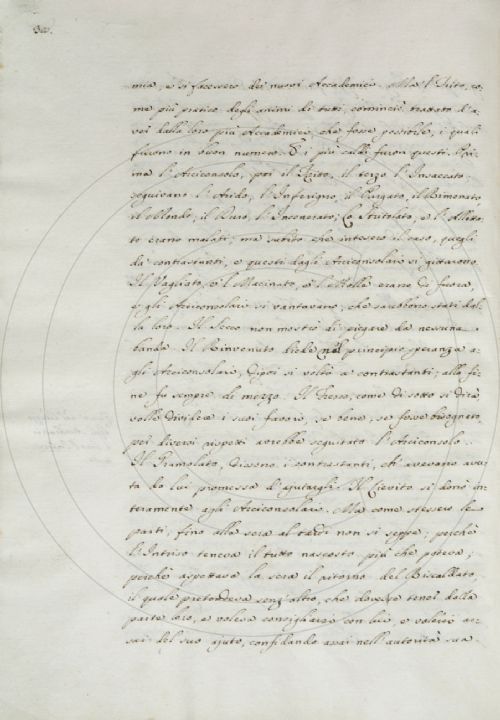 mia, e si facessero dei nuovi Accademici. Ma l'Trito, co-
me più pratico degli animi di tutti, cominciò trattato d'a-
ver dalla loro più Accademici, che fosse possibile, i quali
furono in buon numero. E i più caldi furon questi. Pri-
ma l'Arciconsolo, poi il Trito, il terzo l'Insaccato;
seguivano l'Arido, l'Inferigno, il Purgato, il Rimenato
il Mondo, il Duro, l'Incenerato; Lo Stritolato, e l'Allet-
to erano malati; ma subito che intesero il caso, quegli
da contrastanti, e questi dagli Arciconsolari si gittarono.
Il Vagliato, e l'Macinato, e l'Molle erano di fuora,
e gli Arciconsolari si vantavano, che sarebbero stati dal-
la loro. Il Secco non mostrò di piegare da nessuna
banda. Il Rinvenuto diede nel principio speranza a-
gli Arciconsolari, dipoi si voltò a contrastanti; alla fi-
ne fu sempre di mezzo. Il Fresco, come di sotto si dirà,
volle dividere i suoi favori, se bene, se fosse bisognato,
per diversi rispetti avrebbe seguitato l'Arciconsolo.
Il Gramolato, dicono i contrastanti, ch'avevano avu-
ta da lui promessa d'ajutargli. Il Lievito si donò in-
teramente agli Arciconsolari. Ma come stessero le
parti, fino alla sera al tardi non si seppe, perchè
l'Intriso teneva il tutto nascosto più che poteva;
perchè aspettava la sera il ritorno del Riscaldato,
il quale pretendeva senz'altro, che dovesse tener dalla
parte loro, e voleva consigliarsi con lui, e valersi as-
sai del suo ajuto, confidando assai nell'autorità sua